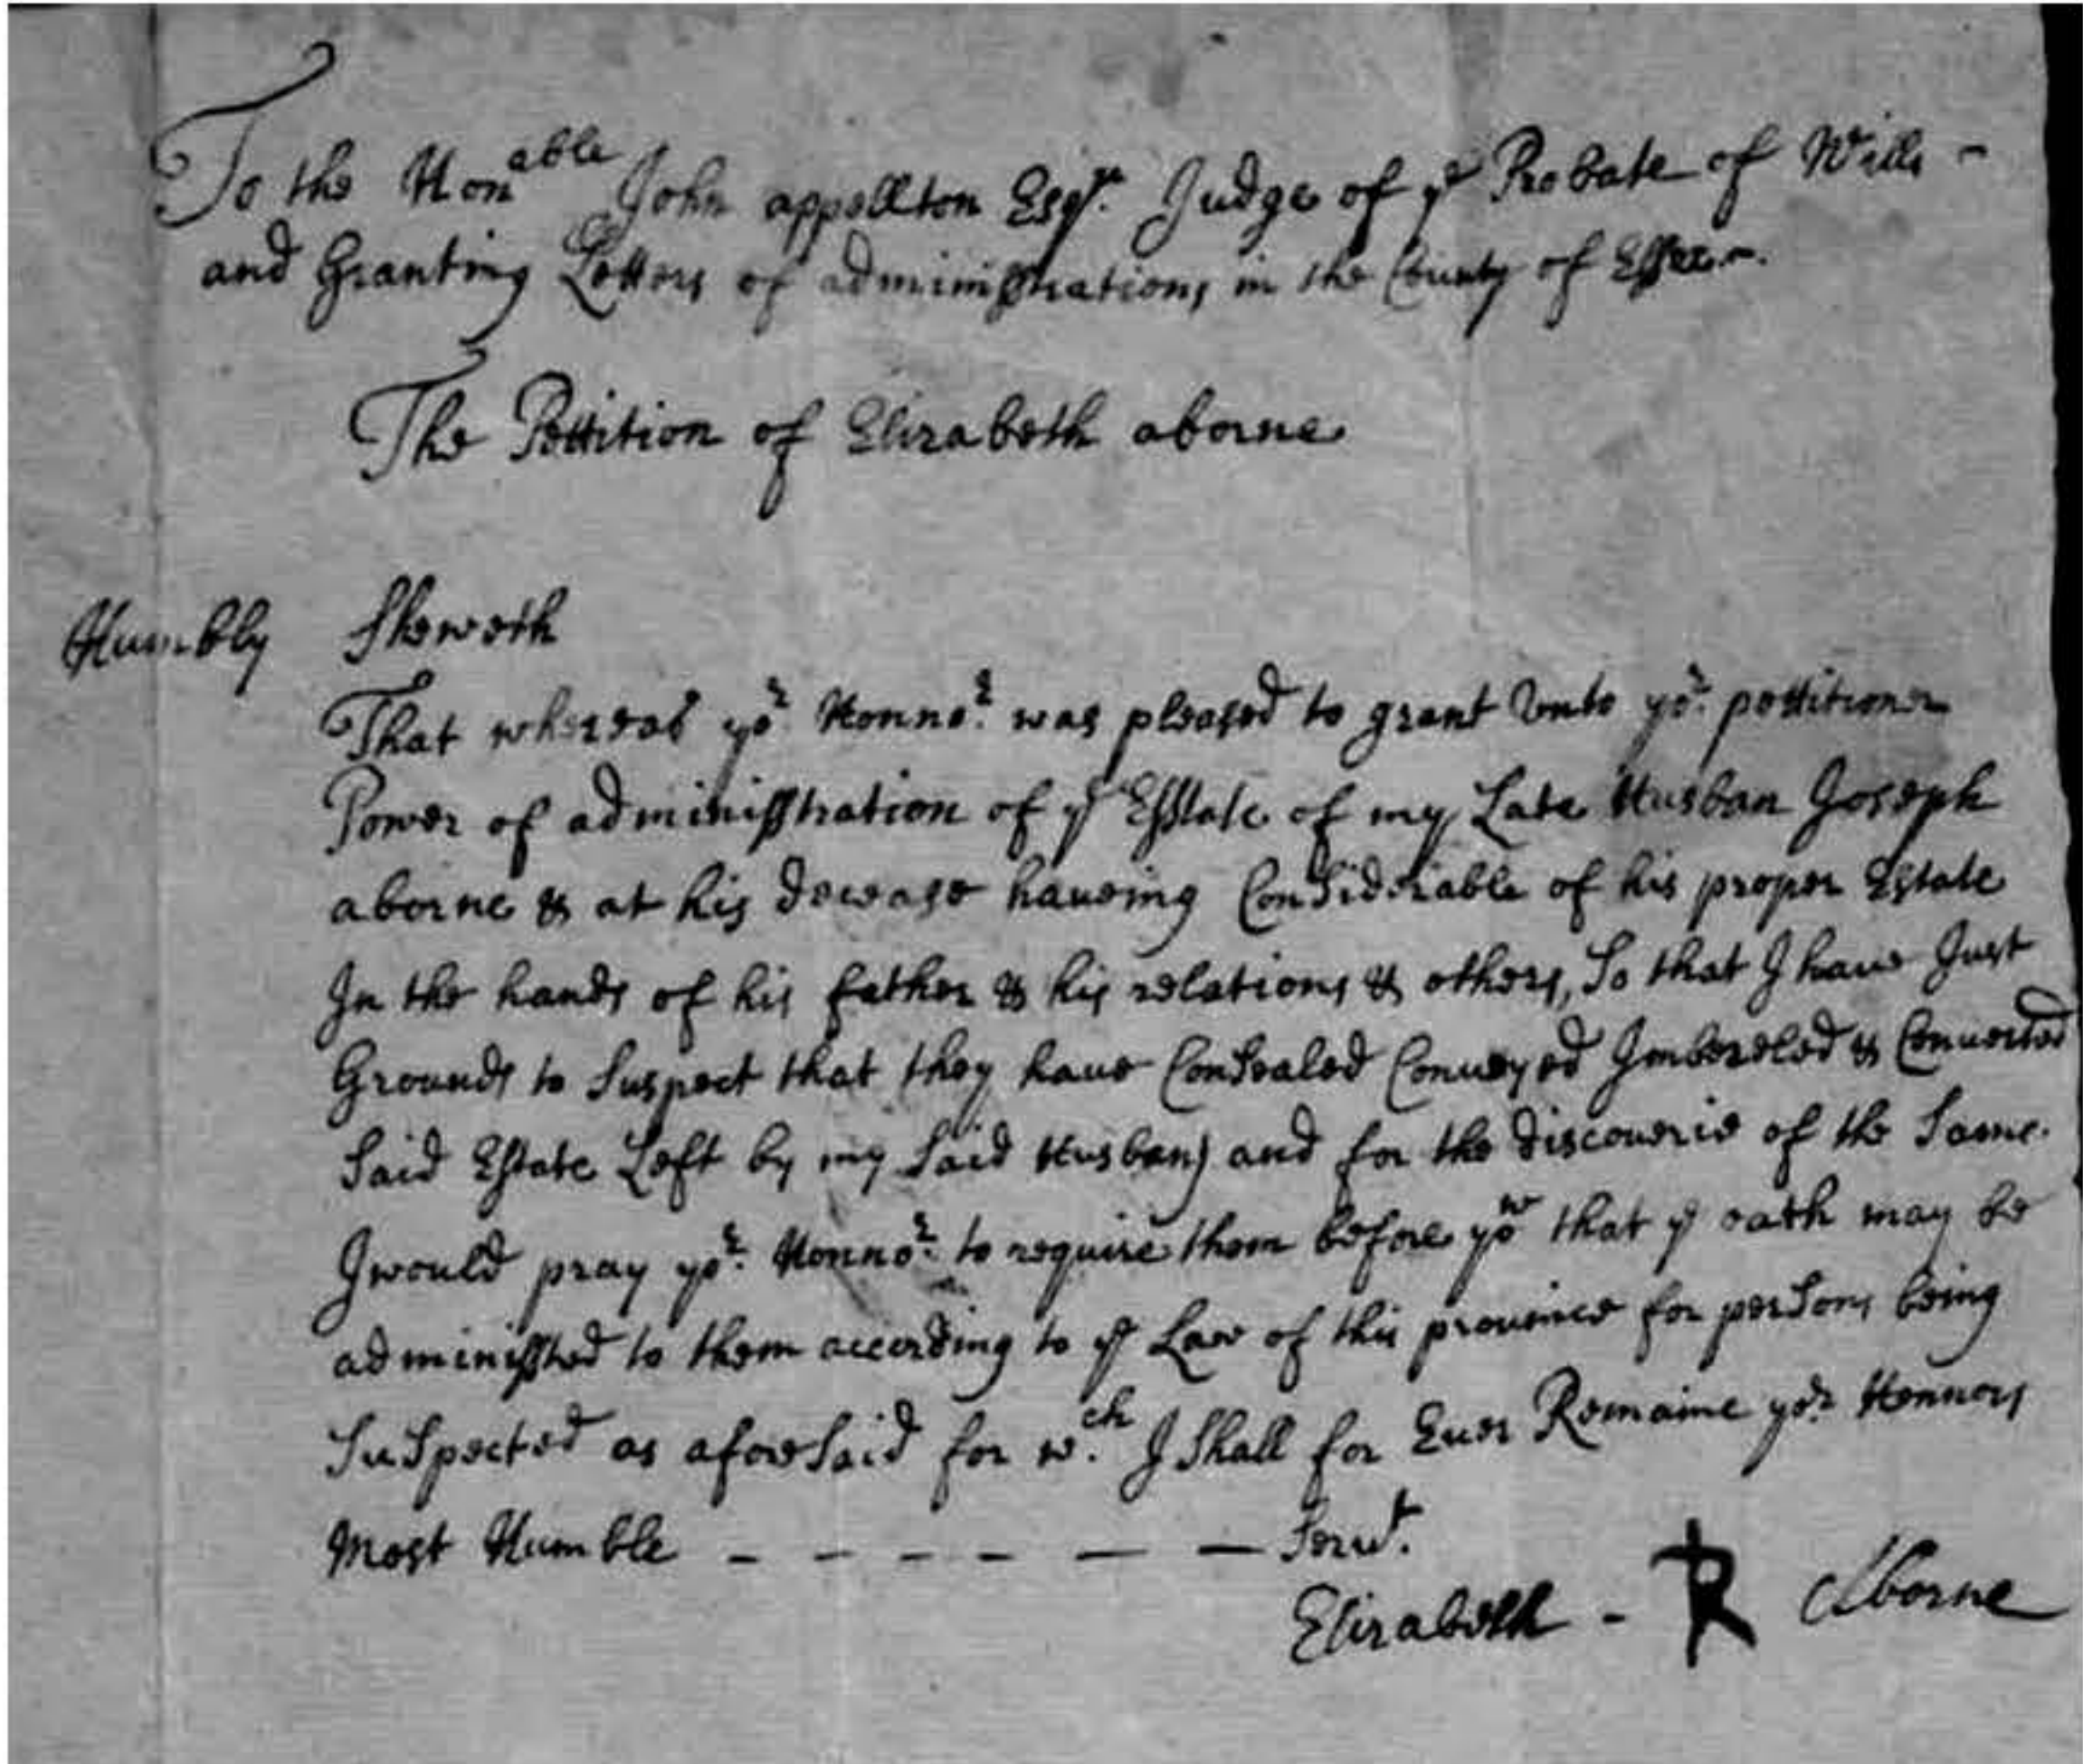 To the Honable John appellton Esqr. Judge of ye Probate of Wills -
and Granting Letters of administrations in the County of Essex.
The Pettition of Elizabeth aborne
Humbly Sheweth
That whereas yor Honnor. was pleased to grant Unto yor. pettitioner
Power of administration of ye Esstate of my Late Husban Joseph
aborne & at his decease haueing Considerable of his proper Estate
In the hands of his father & his relations & others, So that I haue Just
Grounds to Suspect that they haue Consealed Conueyed Imbezeled & Conuerted
Said Estate Left by my Said Husban) and for the discouerie of the Same.
I would pray yor. Honnor. to require them before yow that ye oath may be
administred to them according to ye Law of this prouince for persons being
Suspected as aforesaid for w.ch I Shall for Euer Remaine yor Honnors
Most Humble - - - - — — Servt.
Elizabeth - R Aborne